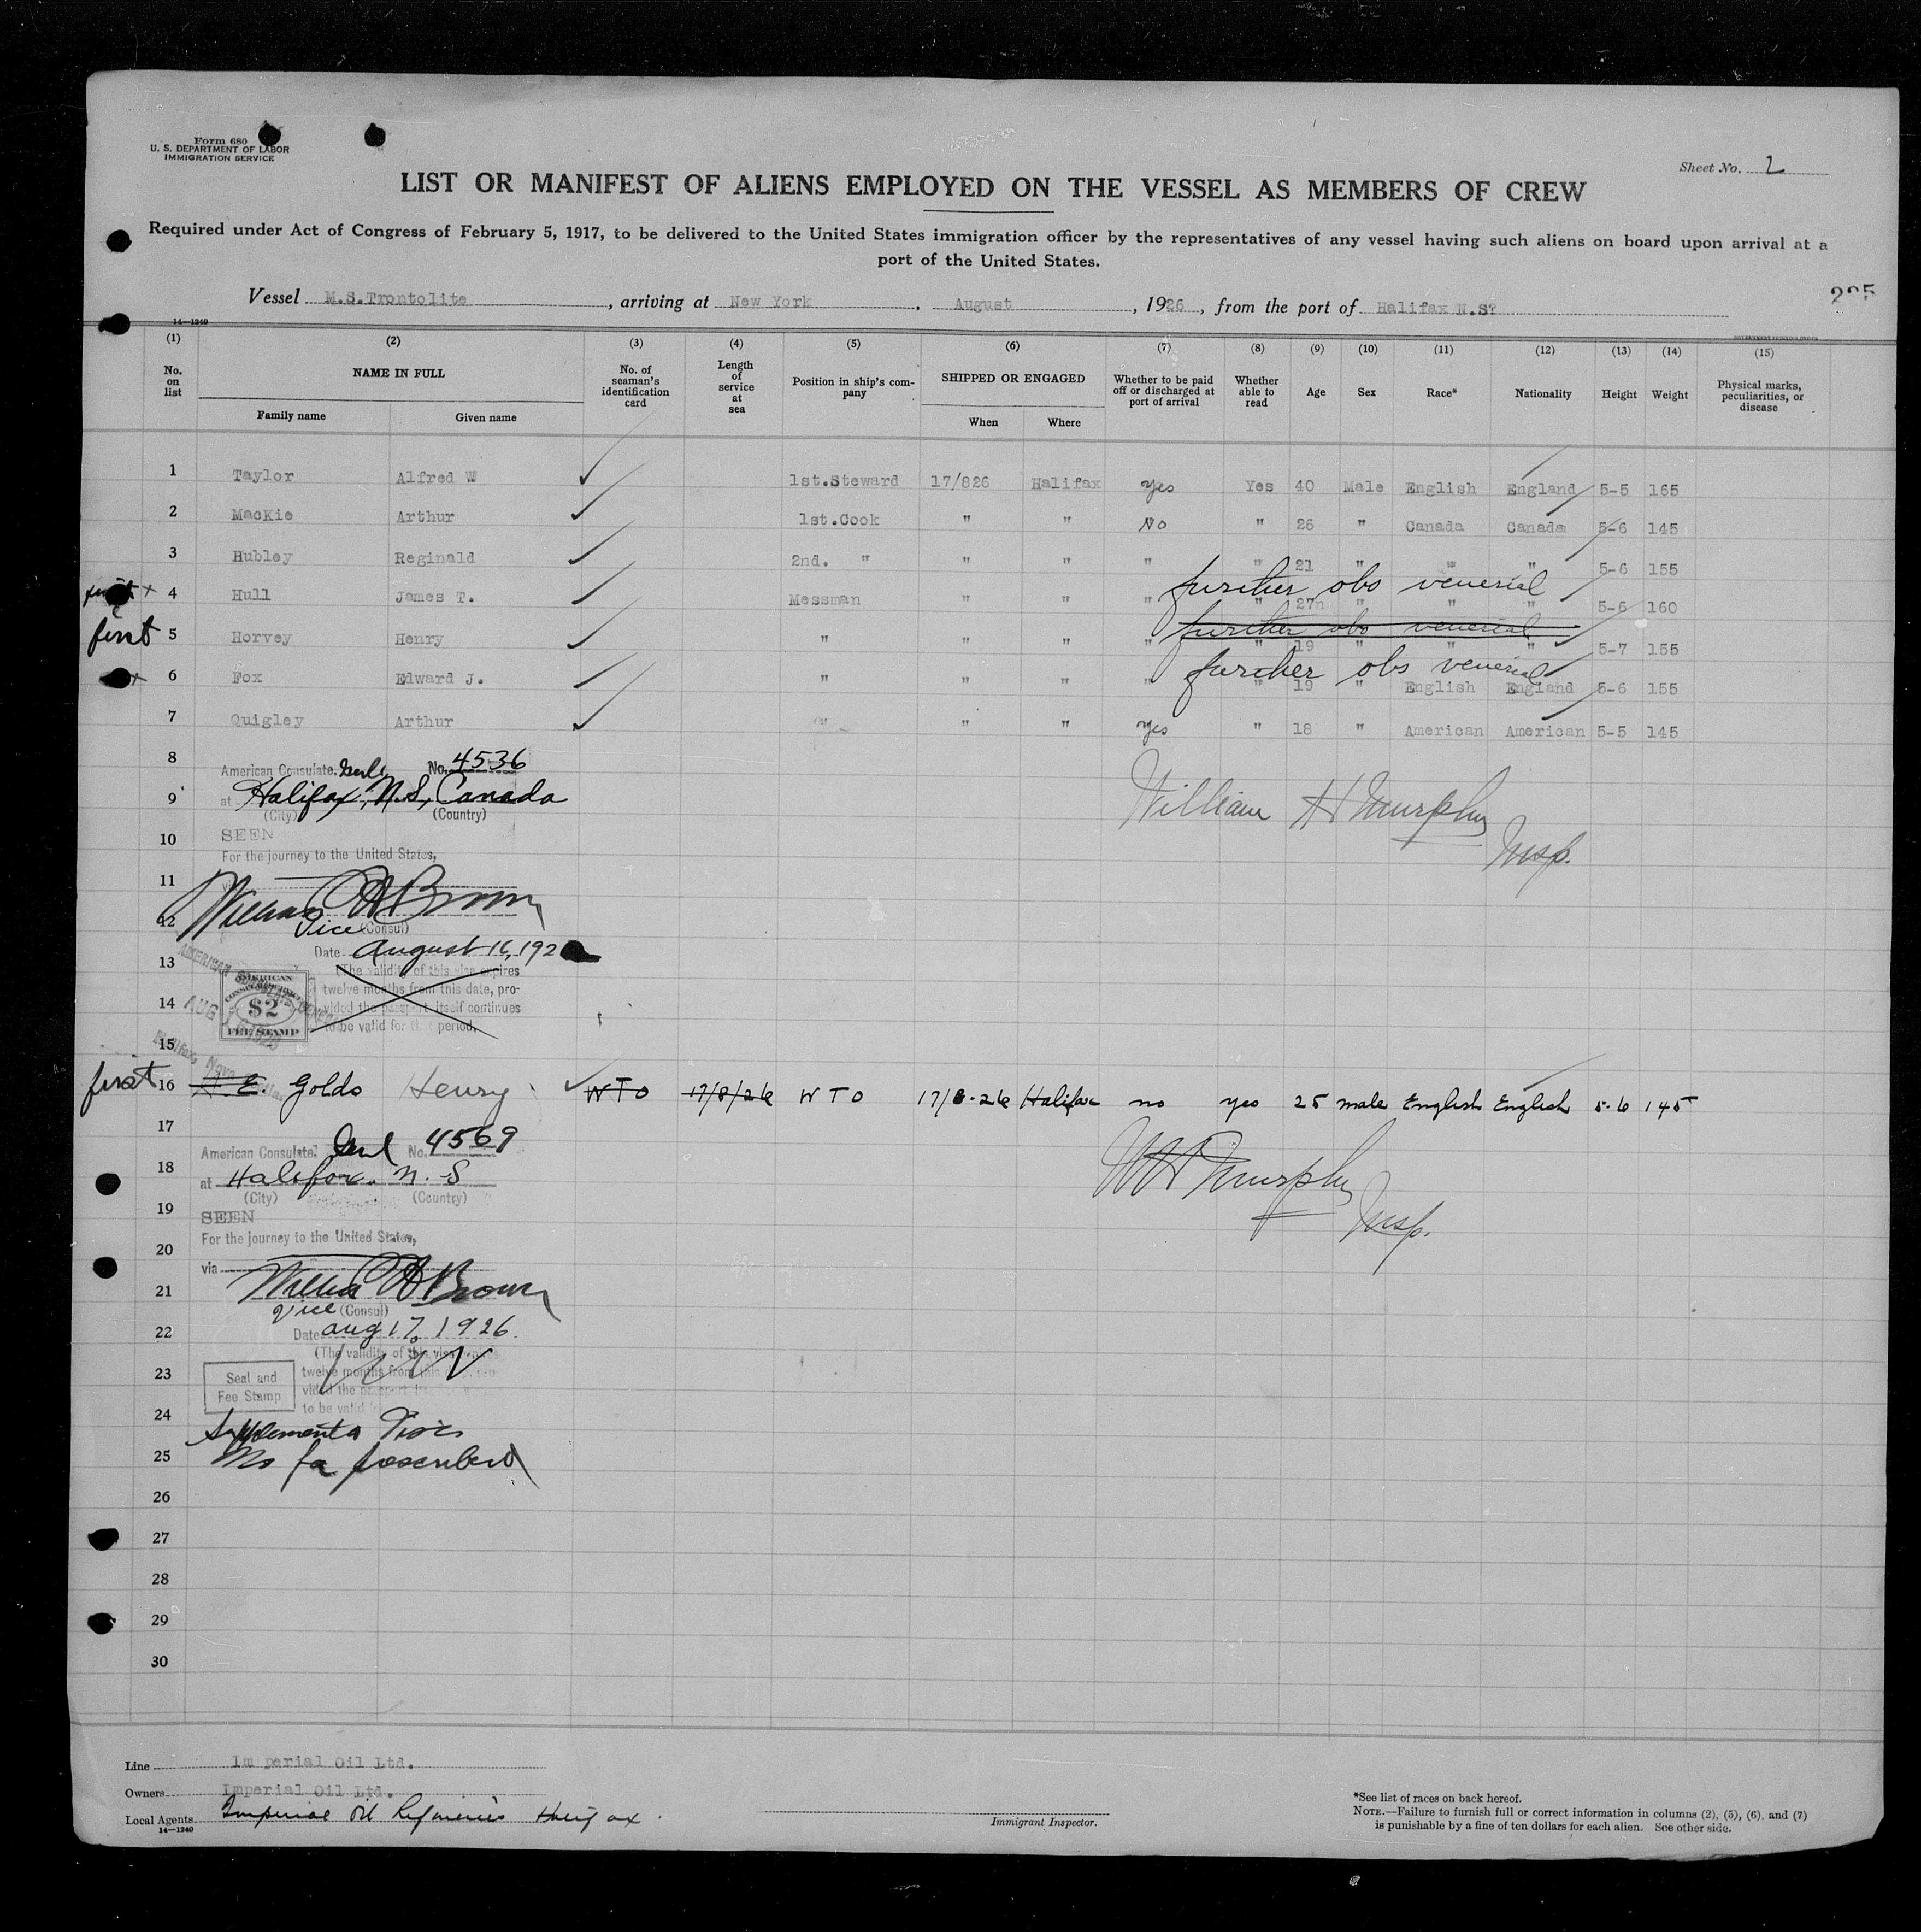 Form 680
U. S. DEPARTMENT OF LABOR
IMMIGRATION SERVICE
Sheet No. 2
LIST OR MANIFEST OF ALIENS EMPLOYED ON THE VESSEL AS MEMBERS OF CREW
Required under Act of Congress of February 5, 1917, to be delivered to the United States immigration officer by the representatives of any vessel having such aliens on board upon arrival at a
port of the United States.
Vessel M.S.Trontolite, arriving at New York, August, 1926, from the port of Halifax N.S?
14—1240
(1) (2) (3) (4) (5) (6) (7) (8) (9) (10) (11) (12) (13) (14) (15)
No. on list NAME IN FULL No. of seaman's identification card Length of service at sea Position in ship's company SHIPPED OR ENGAGED Whether to be paid off or discharged at port of arrival Whether able to read Age Sex Race* Nationality Height Weight Physical marks, peculiarities, or disease
Family name Given name When Where
1 Taylor Alfred W 1st.Steward 17/826 Halifax yes Yes 40 Male English England 5-5 165
2 MacKie Arthur 1st.Cook " " No " 26 " Canada Canada 5-6 145
3 Hubley Reginald 2nd. " " " " " 21 " " " 5-6 155
further obs venerial
4 Hull James T. Messman " " " " 27n " " " 5-6 160
first 5 Horvey Henry " " " " " 19 " " " 5-7 155
further obs venerial
further obs venerial
6 Fox Edward J. " " " " " 19 " English England 5-6 155
7 Quigley Arthur " " " yes " 18 " American American 5-5 145
8 American Consulate Genl. No. 4536
9 at Halifax, N.S., Canada
(City) (Country)
William H Murphy
Insp.
10 SEEN
For the journey to the United States,
11
12 William A Brown
Vice (Consul)
Date August 16, 192
13 (The validity of this visa expires
twelve months from this date, pro-
14 vided the passport itself continues
to be valid for that period.
AMERICAN
CONSULAR SERVICE
$2
FEE STAMP
15
first 16 H. E. Golds Henry WTO 17/8/26 WTO 17/8-26 Halifax no yes 25 male English English 5-6 145
17 American Consulate Genl No. 4569
18 at Halifax. N.S
(City) (Country)
WH Murphy
Insp.
19 SEEN
For the journey to the United States,
20 via
21 William A Brown
Vice (Consul)
22 Date Aug 17, 1926.
(The validity of this visa
23 Seal and Fee Stamp
twelve months from this
vided the
to be valid
24 Supplemental Visa
25 No fee prescribed
26
27
28
29
30
Line Im perial Oil Ltd.
Owners Imperial Oil Ltd.
Local Agents Imperial Oil Refineries Halifax.
14—1240
Immigrant Inspector.
*See list of races on back hereof.
NOTE.—Failure to furnish full or correct information in columns (2), (5), (6), and (7)
is punishable by a fine of ten dollars for each alien. See other side.